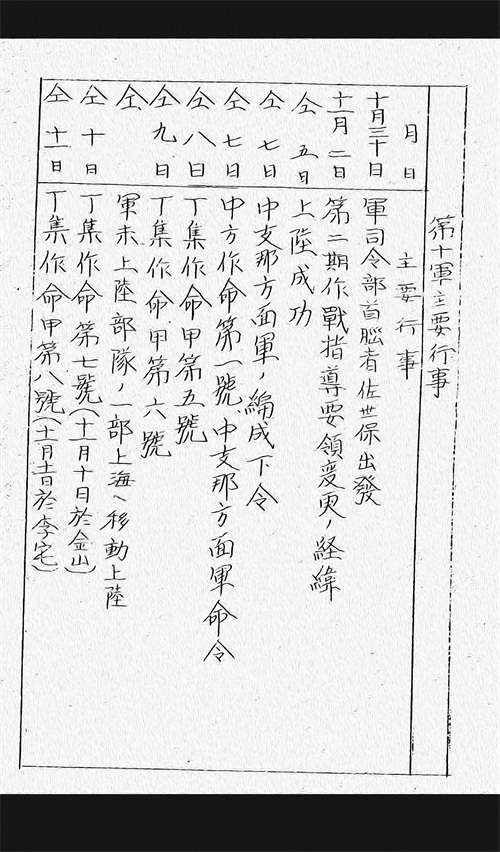 第十軍主要行事
月日 主要行事
十月三十日 軍司令部首脳者佐世保出發
十一月二日 第二期作戰指導要領変更ノ経緯
仝五日 上陸成功
仝七日 中支那方面軍ノ編成下令
仝七日 中方作命第一號、中支那方面軍命令
仝八日 丁集作命甲第五號
仝九日 丁集作命甲第六號
仝 軍未上陸部隊ノ一部上海ヘ移動上陸
仝十日 丁集作命第七號(十一月十日於金山)
仝十一日 丁集作命甲第八號(十一月十一日於李宅)